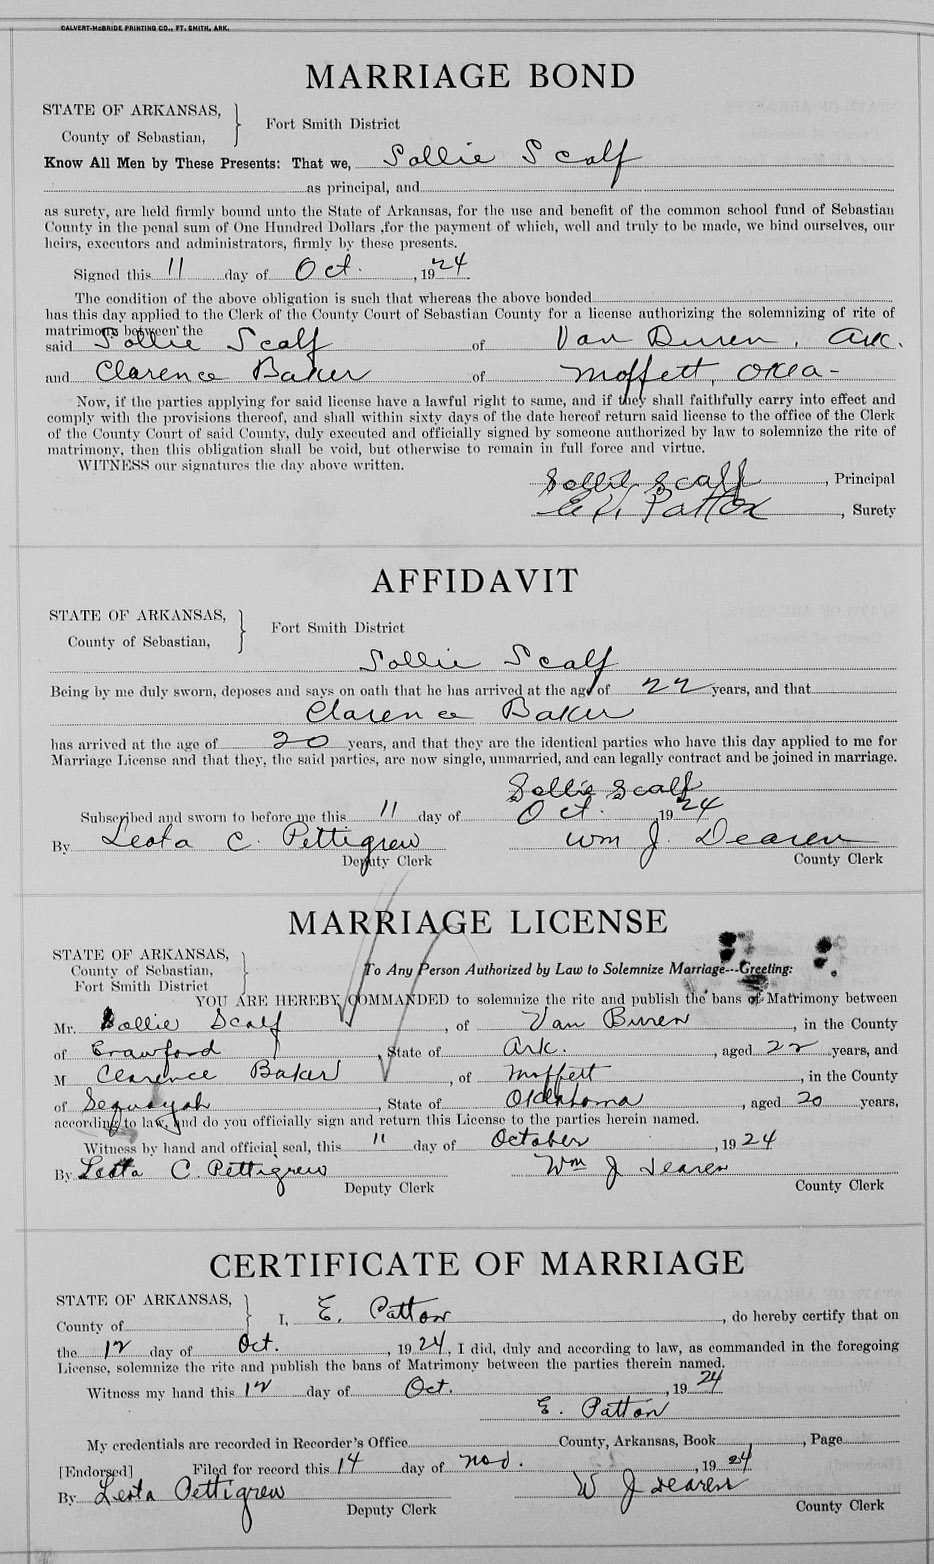 CALVERT-McBRIDE PRINTING CO., FT. SMITH, ARK.
MARRIAGE BOND
STATE OF ARKANSAS,
County of Sebastian,
Fort Smith District
Know All Men by These Presents: That we, Sollie Scalf
as principal, and
as surety, are held firmly bound unto the State of Arkansas, for the use and benefit of the common school fund of Sebastian
County in the penal sum of One Hundred Dollars ,for the payment of which, well and truly to be made, we bind ourselves, our
heirs, executors and administrators, firmly by these presents.
Signed this 11 day of Oct. , 1924
The condition of the above obligation is such that whereas the above bonded
has this day applied to the Clerk of the County Court of Sebastian County for a license authorizing the solemnizing of rite of
matrimony between the
said Sollie Scalf of Van Buren, Ark.
and Clarence Baker of Moffett, Okla-
Now, if the parties applying for said license have a lawful right to same, and if they shall faithfully carry into effect and
comply with the provisions thereof, and shall within sixty days of the date hereof return said license to the office of the Clerk
of the County Court of said County, duly executed and officially signed by someone authorized by law to solemnize the rite of
matrimony, then this obligation shall be void, but otherwise to remain in full force and virtue.
WITNESS our signatures the day above written.
Sollie Scalf , Principal
Patton , Surety
AFFIDAVIT
STATE OF ARKANSAS,
County of Sebastian,
Fort Smith District
Sollie Scalf
Being by me duly sworn, deposes and says on oath that he has arrived at the age of 22 years, and that
Clarence Baker
has arrived at the age of 20 years, and that they are the identical parties who have this day applied to me for
Marriage License and that they, the said parties, are now single, unmarried, and can legally contract and be joined in marriage.
Sollie Scalf
Subscribed and sworn to before me this 11 day of Oct. , 1924
By Leota C. Pettigrew Wm J. Dearen
Deputy Clerk County Clerk
MARRIAGE LICENSE
STATE OF ARKANSAS,
County of Sebastian,
Fort Smith District
To Any Person Authorized by Law to Solemnize Marriage---Greeting:
YOU ARE HEREBY COMMANDED to solemnize the rite and publish the bans of Matrimony between
Mr. Sollie Scalf , of Van Buren , in the County
of Crawford , State of Ark. , aged 22 years, and
M Clarence Baker , of Moffett , in the County
of Sequoyah , State of Oklahoma , aged 20 years,
according to law, and do you officially sign and return this License to the parties herein named.
Witness by hand and official seal, this 11 day of October , 1924
By Leota C. Pettigrew Wm J Dearen
Deputy Clerk County Clerk
CERTIFICATE OF MARRIAGE
STATE OF ARKANSAS,
County of
I, E. Patton , do hereby certify that on
the 12 day of Oct. , 1924, I did, duly and according to law, as commanded in the foregoing
License, solemnize the rite and publish the bans of Matrimony between the parties therein named.
Witness my hand this 12 day of Oct. , 1924
E. Patton
My credentials are recorded in Recorder's Office County, Arkansas, Book , Page
[Endorsed] Filed for record this 14 day of Nov. , 1924
By Leota Pettigrew W J Dearen
Deputy Clerk County Clerk